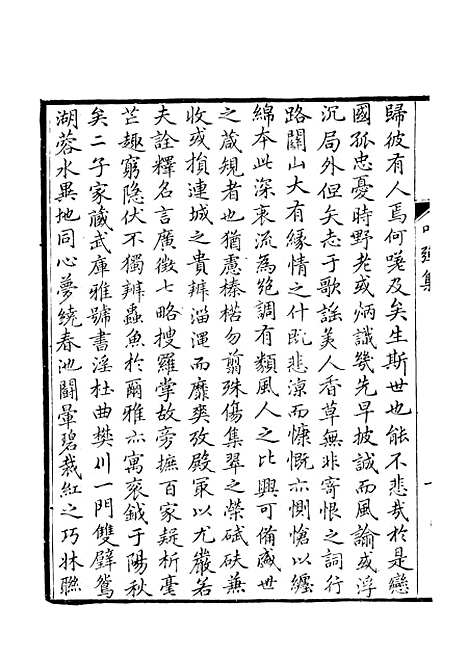 歸彼有人焉何嘆及矣生斯世也能不悲哉於是戀
國孤忠憂時野老或炳識幾先早披誠而風諭或浮
沉局外但矢志于歌謡美人香草無非寄恨之詞行
路關山大有緣情之什既悲涼而慷慨亦惻愴以纏
綿本此深衷流為絶調有類風人之比興可備盛世
之蒇規者也猶慮榛楛勿翦殊傷集翠之榮碔砆兼
收或損連城之貴辨淄澠而靡爽攷殿軍以尤嚴若
夫詮釋名言廣徴七略搜羅掌故旁摭百家疑析毫
芒趣窮隐伏不獨辨蟲魚於爾雅亦寓衮鉞于陽秋
矣二子家藏武庫雅號書淫杜曲樊川一門雙璧鴛
湖蓉水異地同心夢繞春池闘暈碧裁紅之巧牀聯
集
一